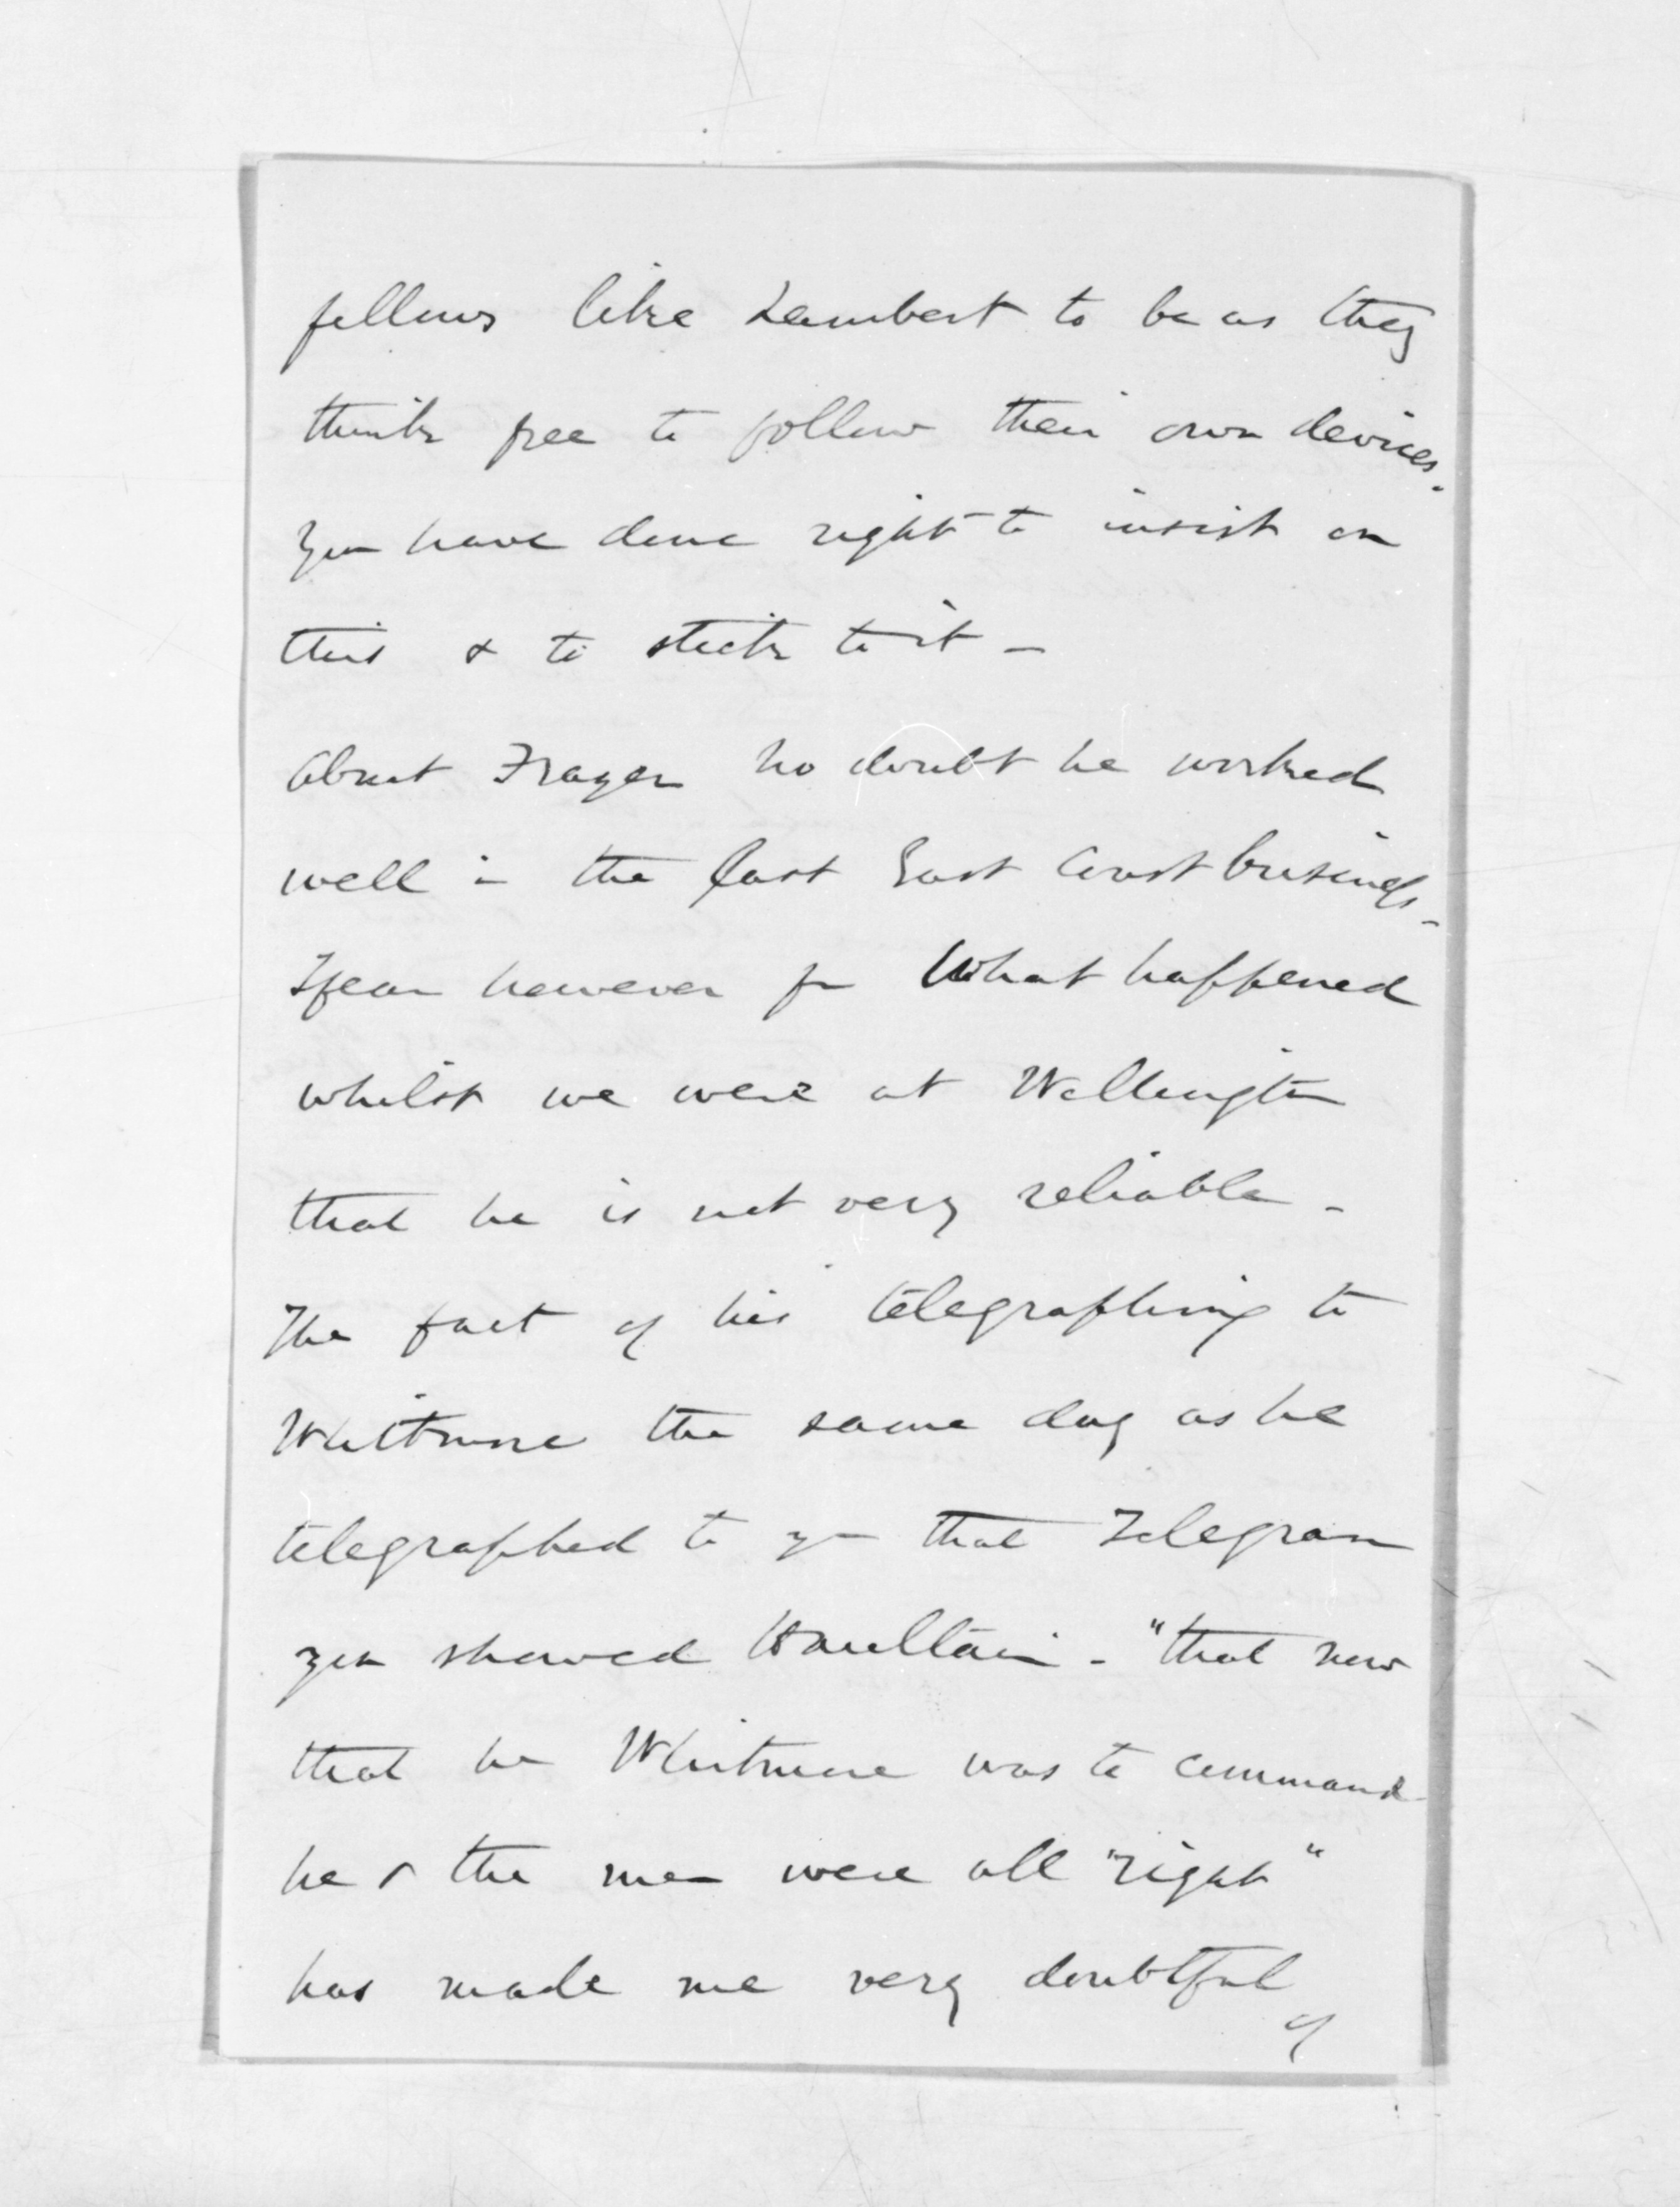 fellows like Lambert to be as they
think free to follow their own devices.
You have done right to insist on
this & to stick to it -
About Frazer no doubt he worked
well in the last East Coast business -
I fear however fr what happened
whilst we were at Wellington
that he is not very reliable -
The fact of his telegraphing to
Whitmore the same day as he
telegraphed to you that Telegram
you showed Haultain - "that now
that he Whitmore was to command
he & the men were all "right"
has made me very doubtful
of